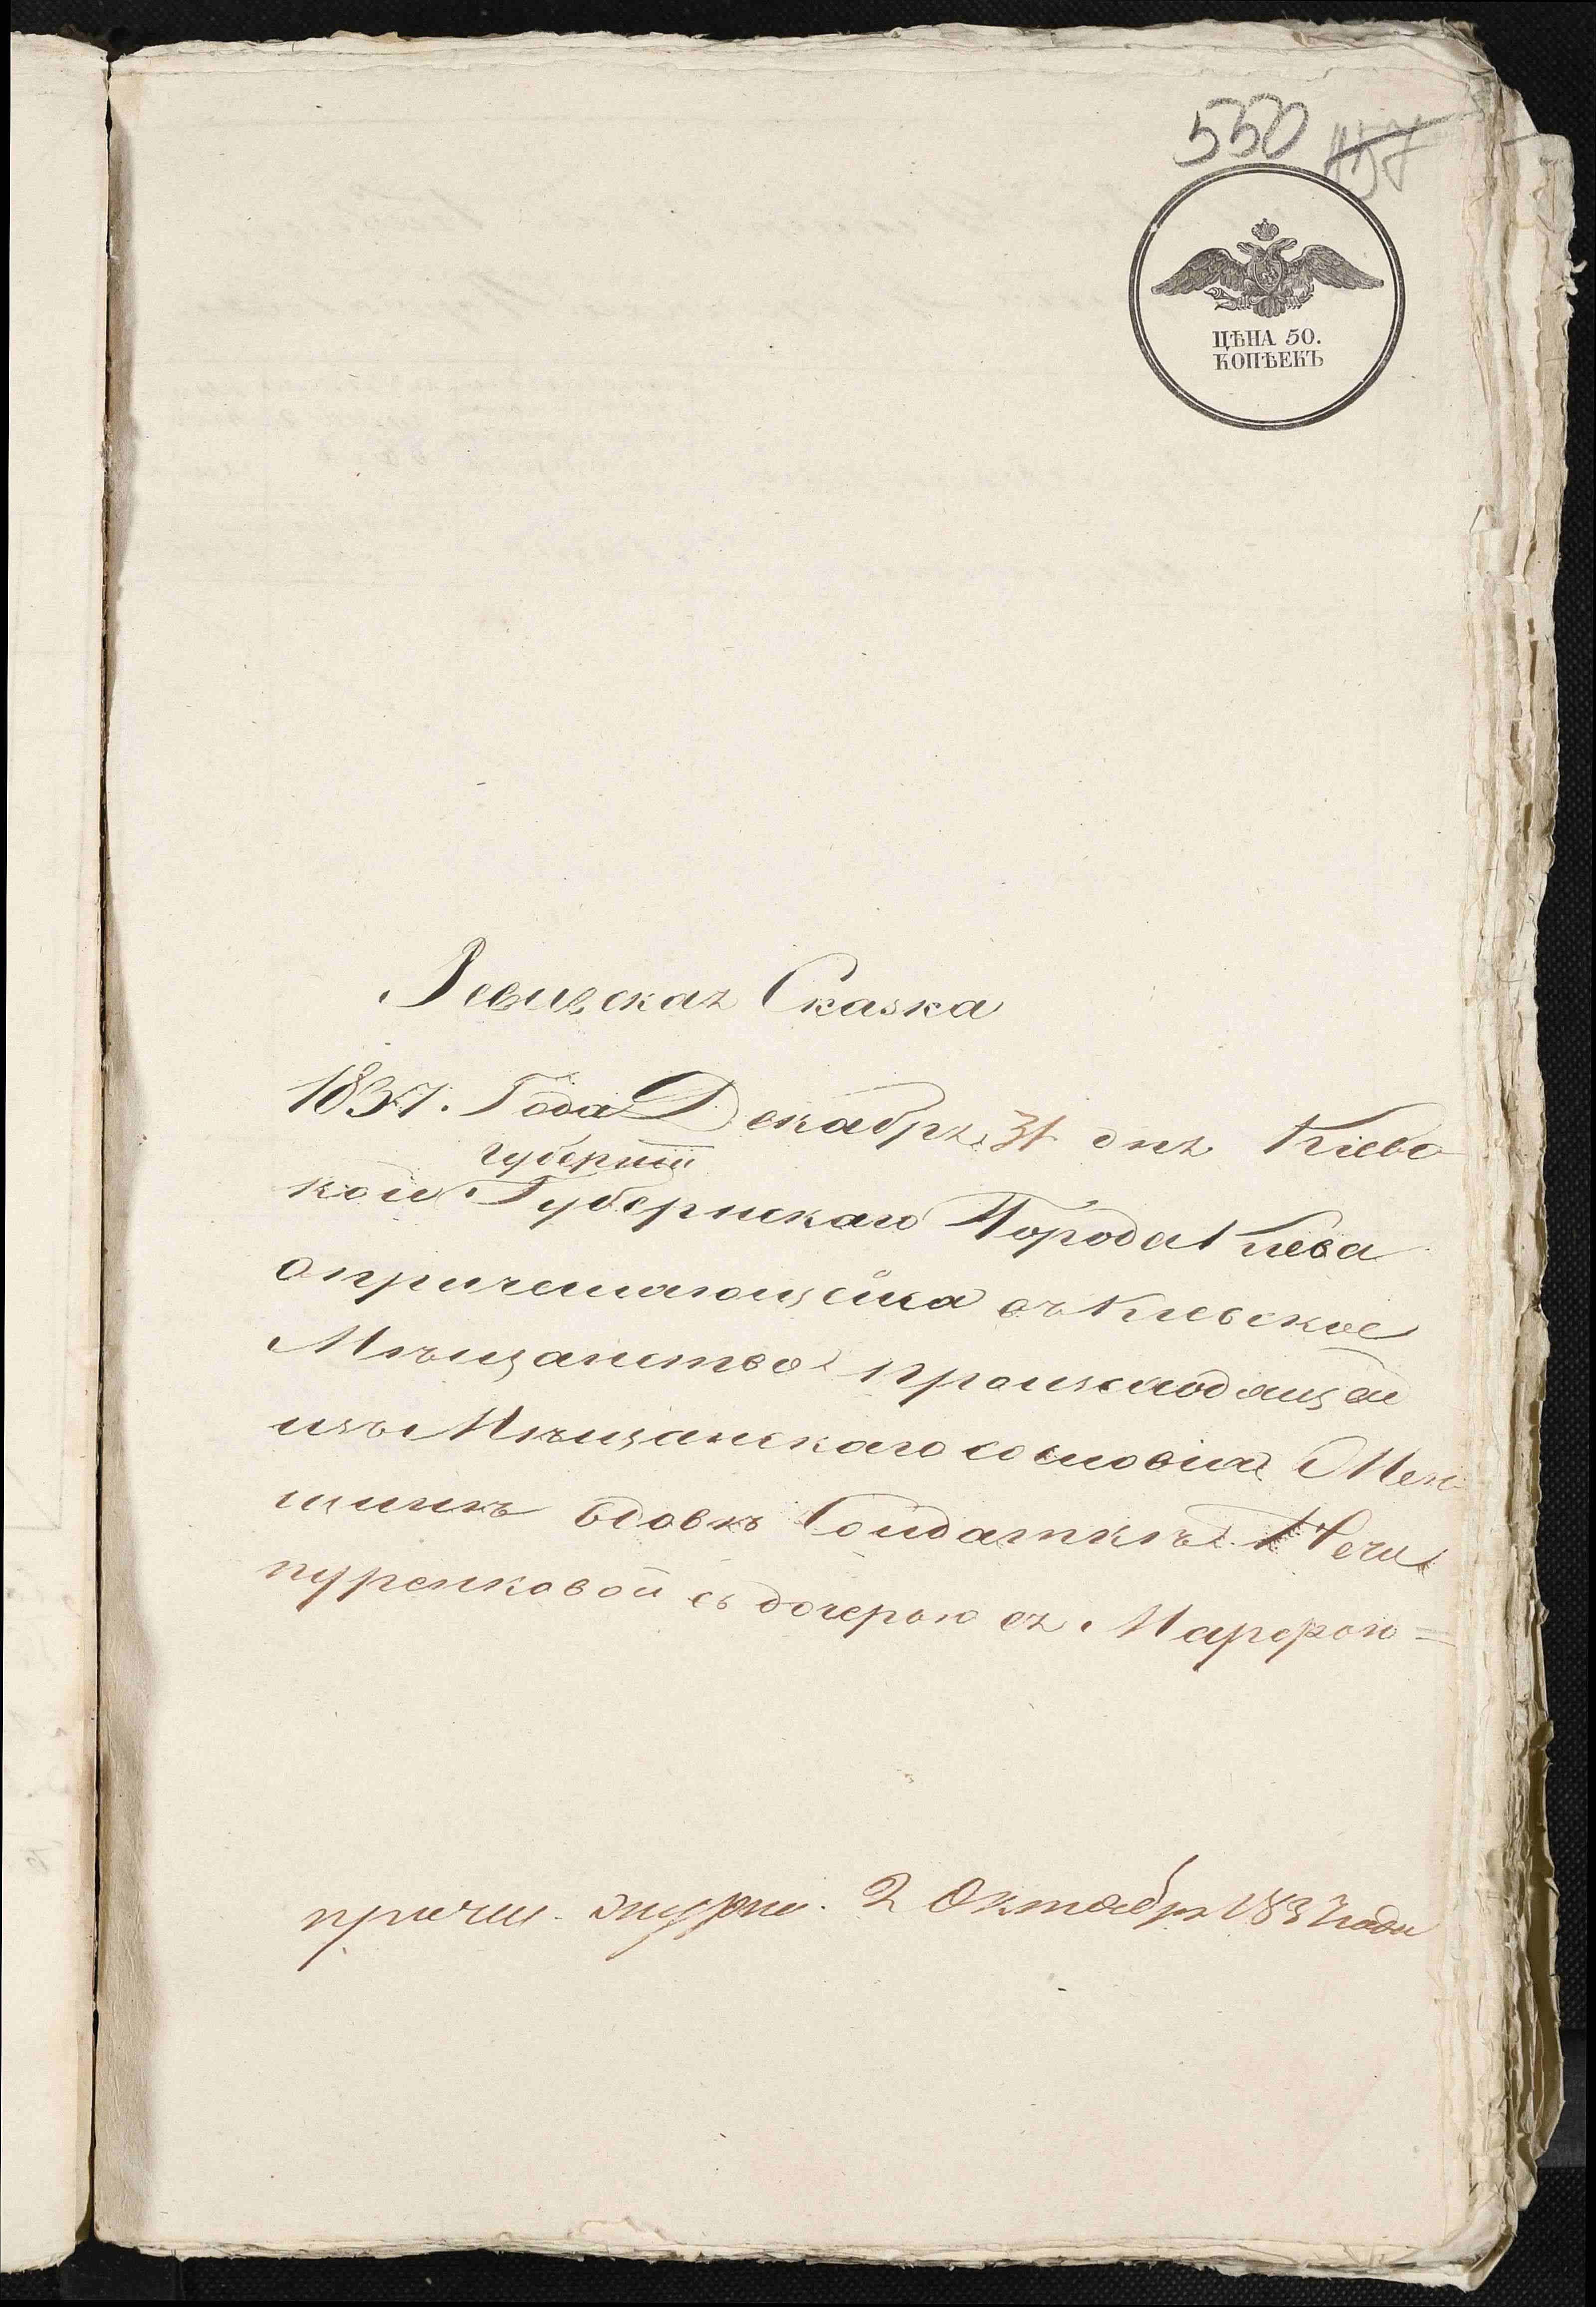 550 457
ЦѢНА 50.
КОПѢЕКЪ
Ревизская Сказка
1837. Года Декабря 31 дня Кіевс
губерніи
кой Губернскаго Города Кіева
о причисляющейся въ Кіевское
Мѣщанство происходящей
изъ Мѣщанскаго сословія Жен
щинѣ вдовѣ Солдаткѣ Чечи
пуренковой съ дочерью ея Марфою =
причи. 2 Октября 1837 года